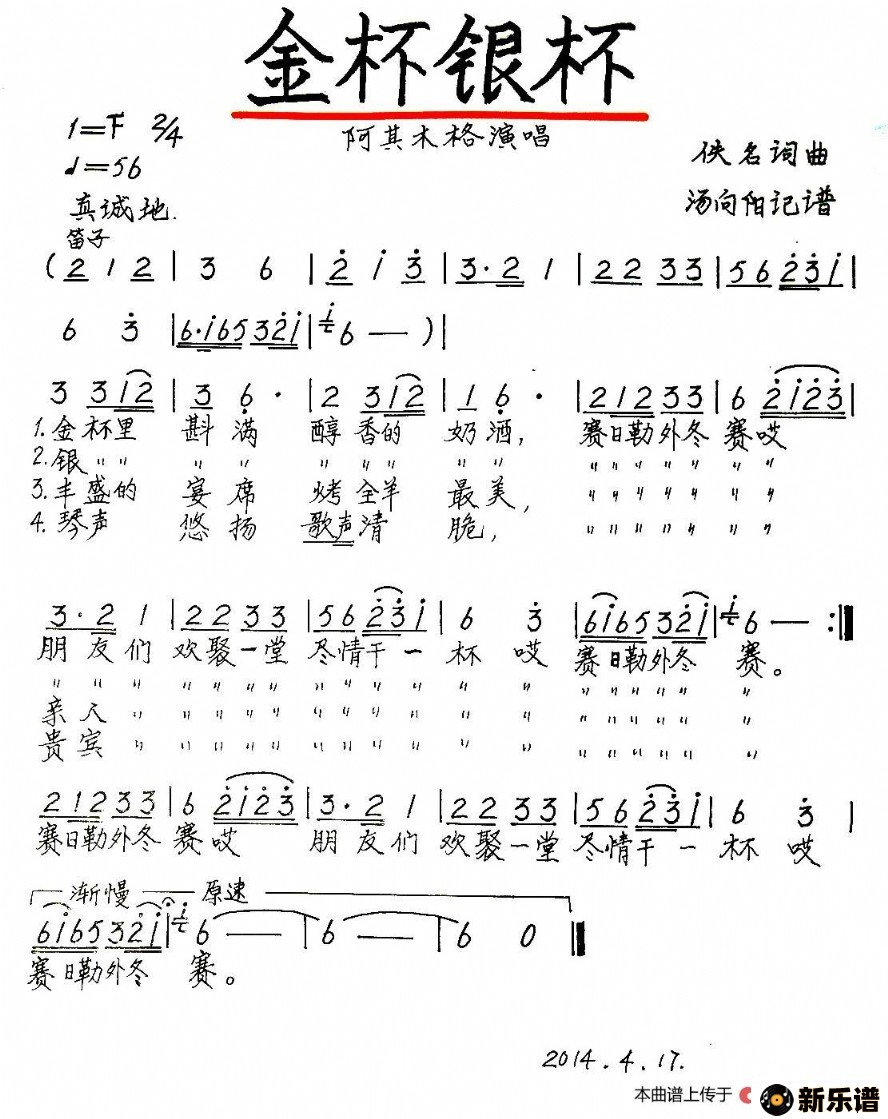 金杯银杯
1=F 2/4
阿其木格演唱
♩=56
佚名词曲
真诚地.
汤向阳记谱
笛子
(2 1 2 | 3 6 | 2̇ 1̇ 3̇ | 3·2 1 | 22 33 | 56 2̇3̇1̇ |
6 3̇ | 6·1̇65 32̇1̇ | 1̇ 6 — ) |
3 312 | 3 6̣· | 2 312 | 1 6̣· | 212 33 | 6 2̇1̇2̇3̇ |
1.金杯里 斟满 醇香的 奶酒, 赛日勒外冬 赛哎
2.银〃〃 〃 〃 〃 〃〃 〃 〃 〃 〃 〃 〃 〃 〃 〃
3.丰盛的 宴席 烤全羊 最美, 〃 〃 〃 〃 〃 〃 〃
4.琴声 悠扬 歌声清 脆, 〃 〃 〃 〃 〃 〃 〃
3·2 1 | 22 33 | 56 2̇3̇1̇ | 6 3̇ | 61̇65 32̇1̇ | 1̇ 6 — :‖
朋友们 欢聚一堂 尽情干一 杯哎 赛日勒外冬 赛。
〃 〃 〃 〃 〃 〃 〃 〃 〃 〃 〃 〃 〃 〃 〃 〃 〃 〃 〃
亲人 〃 〃 〃 〃 〃 〃 〃 〃 〃 〃 〃 〃 〃 〃 〃 〃 〃
贵宾 〃 〃 〃 〃 〃 〃 〃 〃 〃 〃 〃 〃 〃 〃 〃 〃 〃
212 33 | 6 2̇1̇2̇3̇ | 3·2 1 | 22 33 | 56 2̇3̇1̇ | 6 3̇ |
赛日勒外冬 赛哎 朋友们 欢聚一堂 尽情干一 杯哎
渐慢 原速
61̇65 32̇1̇ | 1̇ 6 — | 6 — | 6 0 ‖
赛日勒外冬 赛。
2014.4.17.
本曲谱上传于 新乐谱